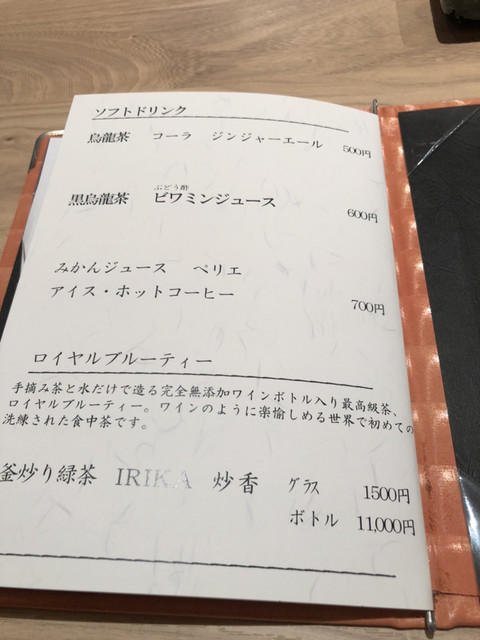 ソフトドリンク
烏龍茶 コーラ ジンジャーエール 500円
ぶどう酢
黒烏龍茶 ビワミンジュース 600円
みかんジュース ペリエ
アイス・ホットコーヒー 700円
ロイヤルブルーティー
手摘み茶と水だけで造る完全無添加ワインボトル入り最高級茶、
ロイヤルブルーティー。ワインのように楽愉しめる世界で初めての
洗練された食中茶です。
釜炒り緑茶 IRIKA 炒香 グラス 1500円
ボトル 11,000円